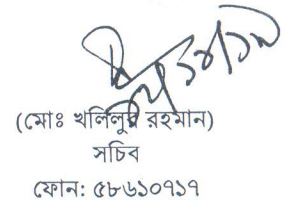 (মোঃ খলিলুর রহমান)
সচিব
ফোন: ৫৮৬১০৭১৭